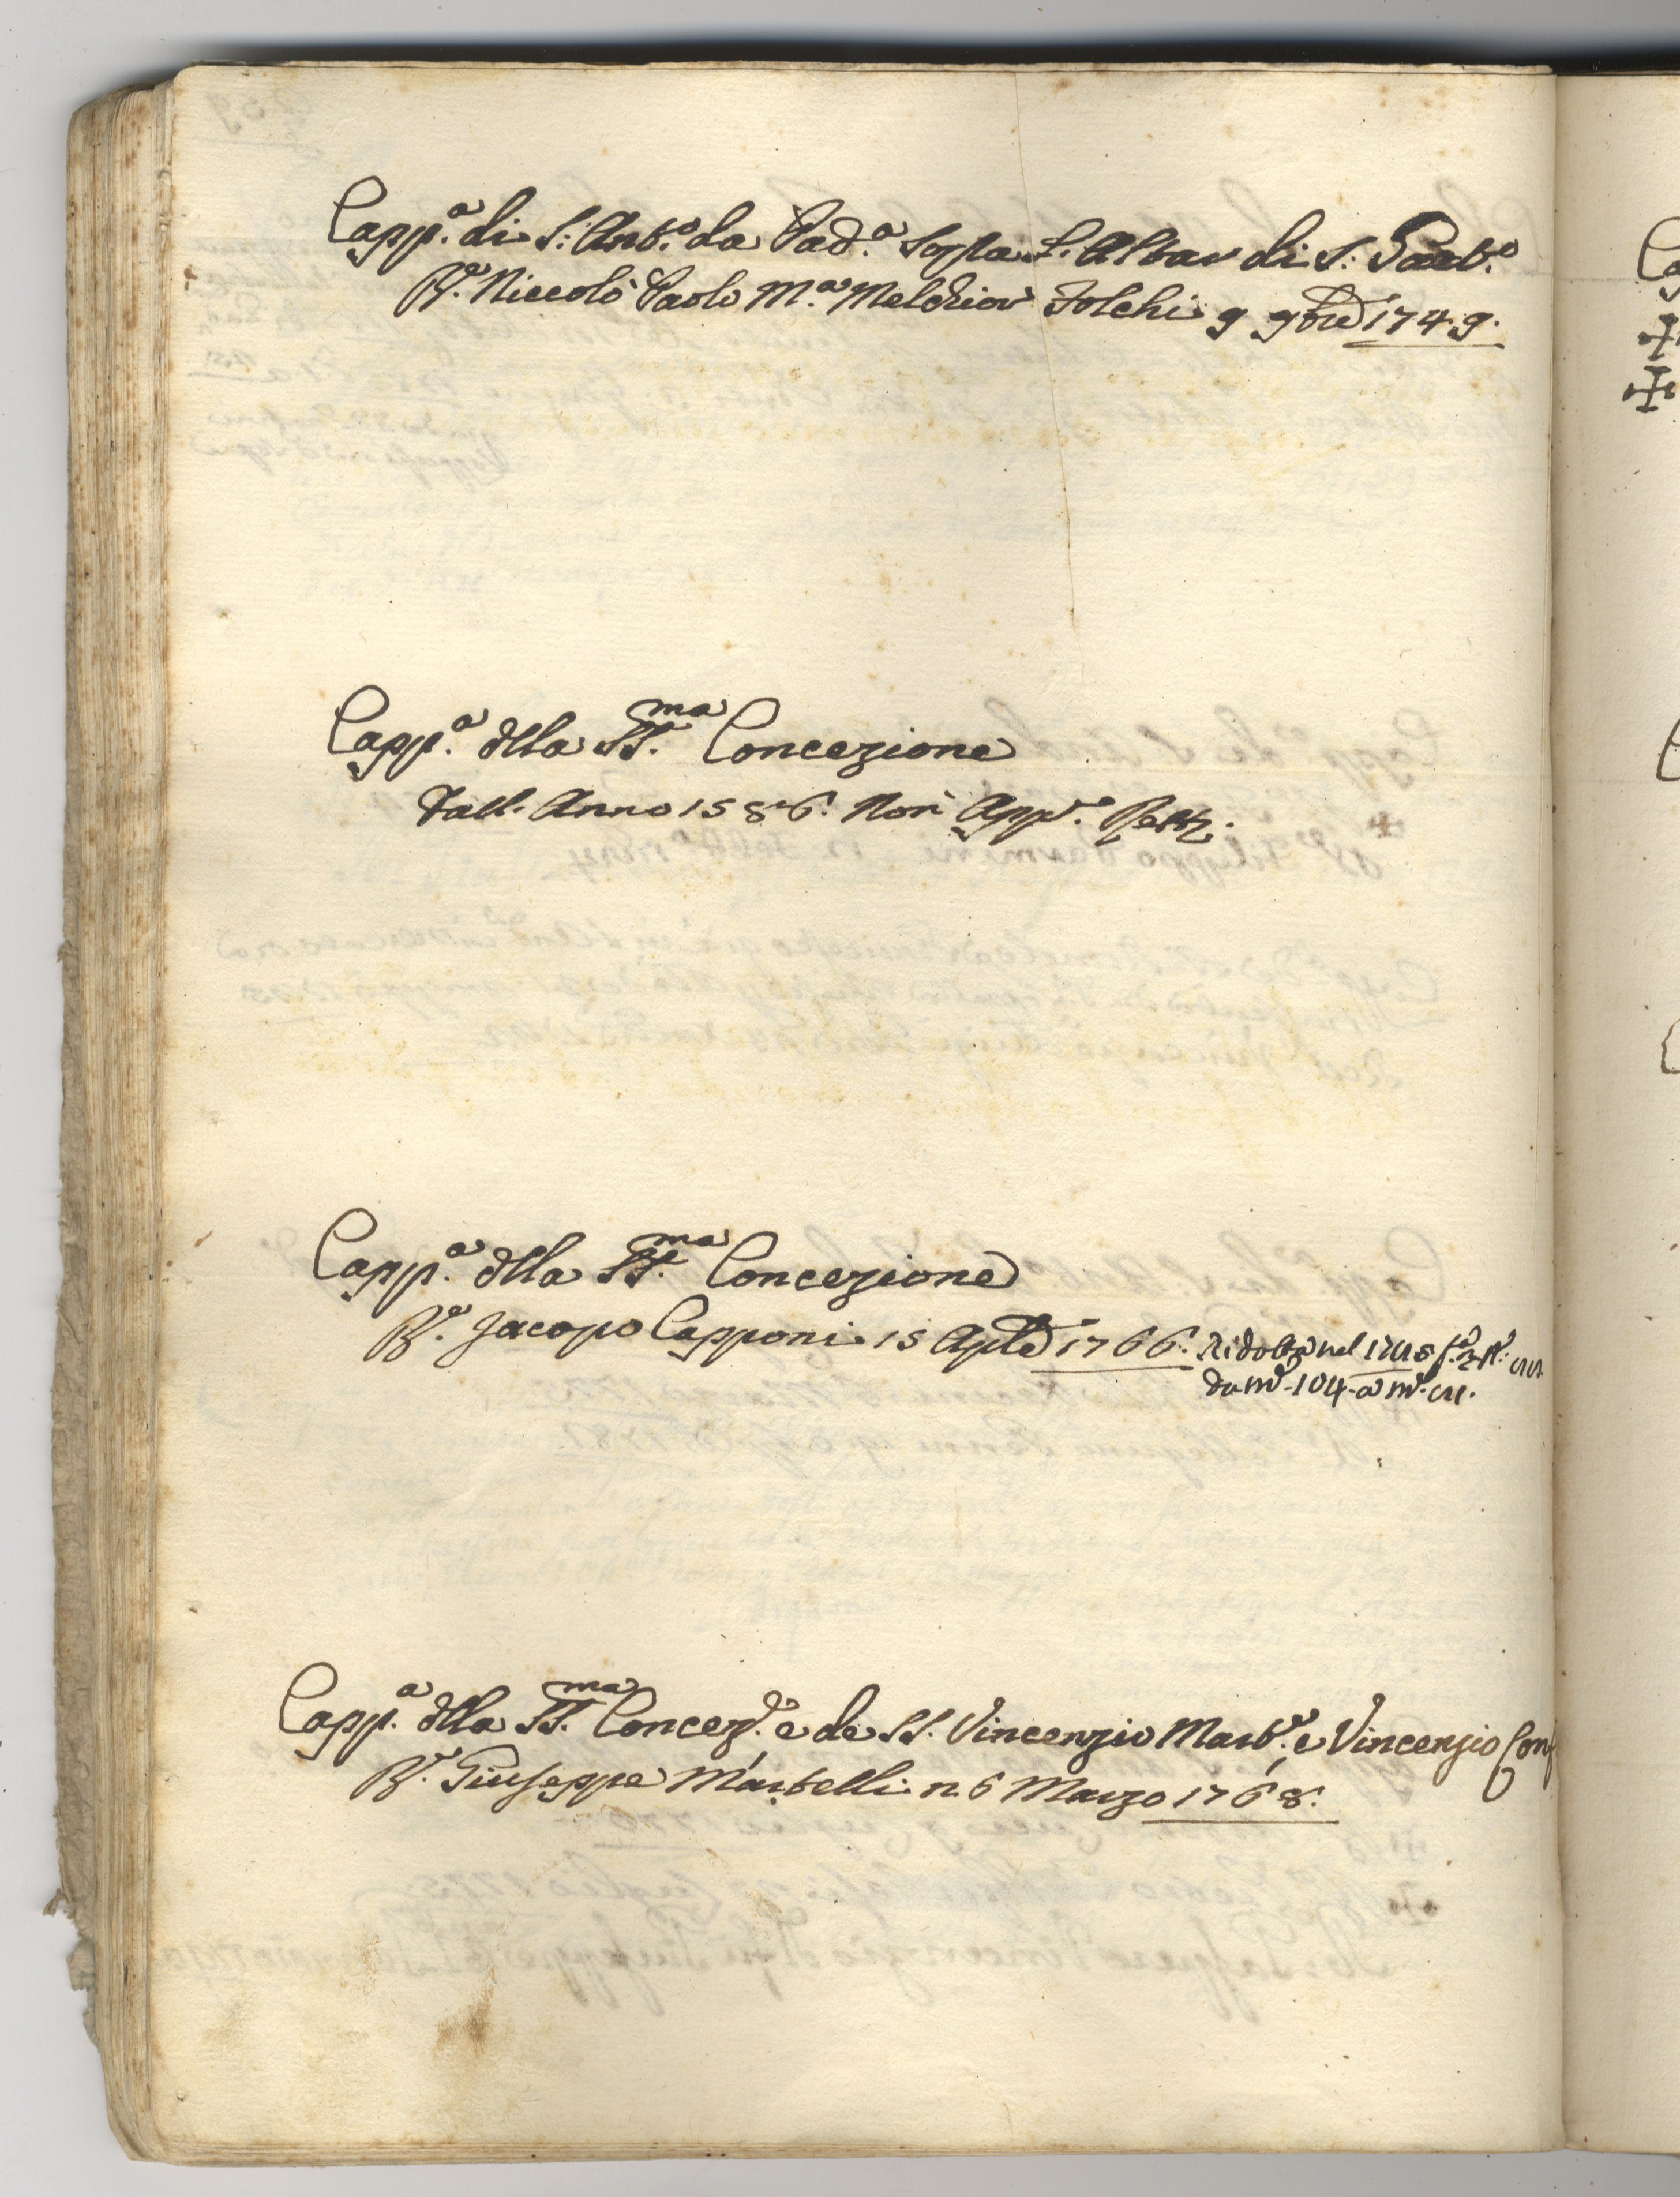 Capp.a di S: Ant.o da Pad.a sopra l'Altar di S:
R.e Niccolò Paolo M.a Melchior Folchi 9 9bre 1749.
Capp.a dlla SS.ma Concezione
Fall. Anno 1586. Non App.
Capp.a dlla SS.ma Concezione
R.e Jacopo Capponi 15 Aple 1766. Ridotta nel
da 104. a
Capp.a dlla SS.ma Concez.e e de SS. Vincenzio Mart.e e Vincenzio Conf
R.e Giuseppe Martelli n. 6 Marzo 1768.